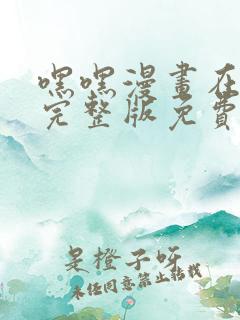 嘿嘿漫畫在
完整版免費
是橙子呀
未经同意禁止转载